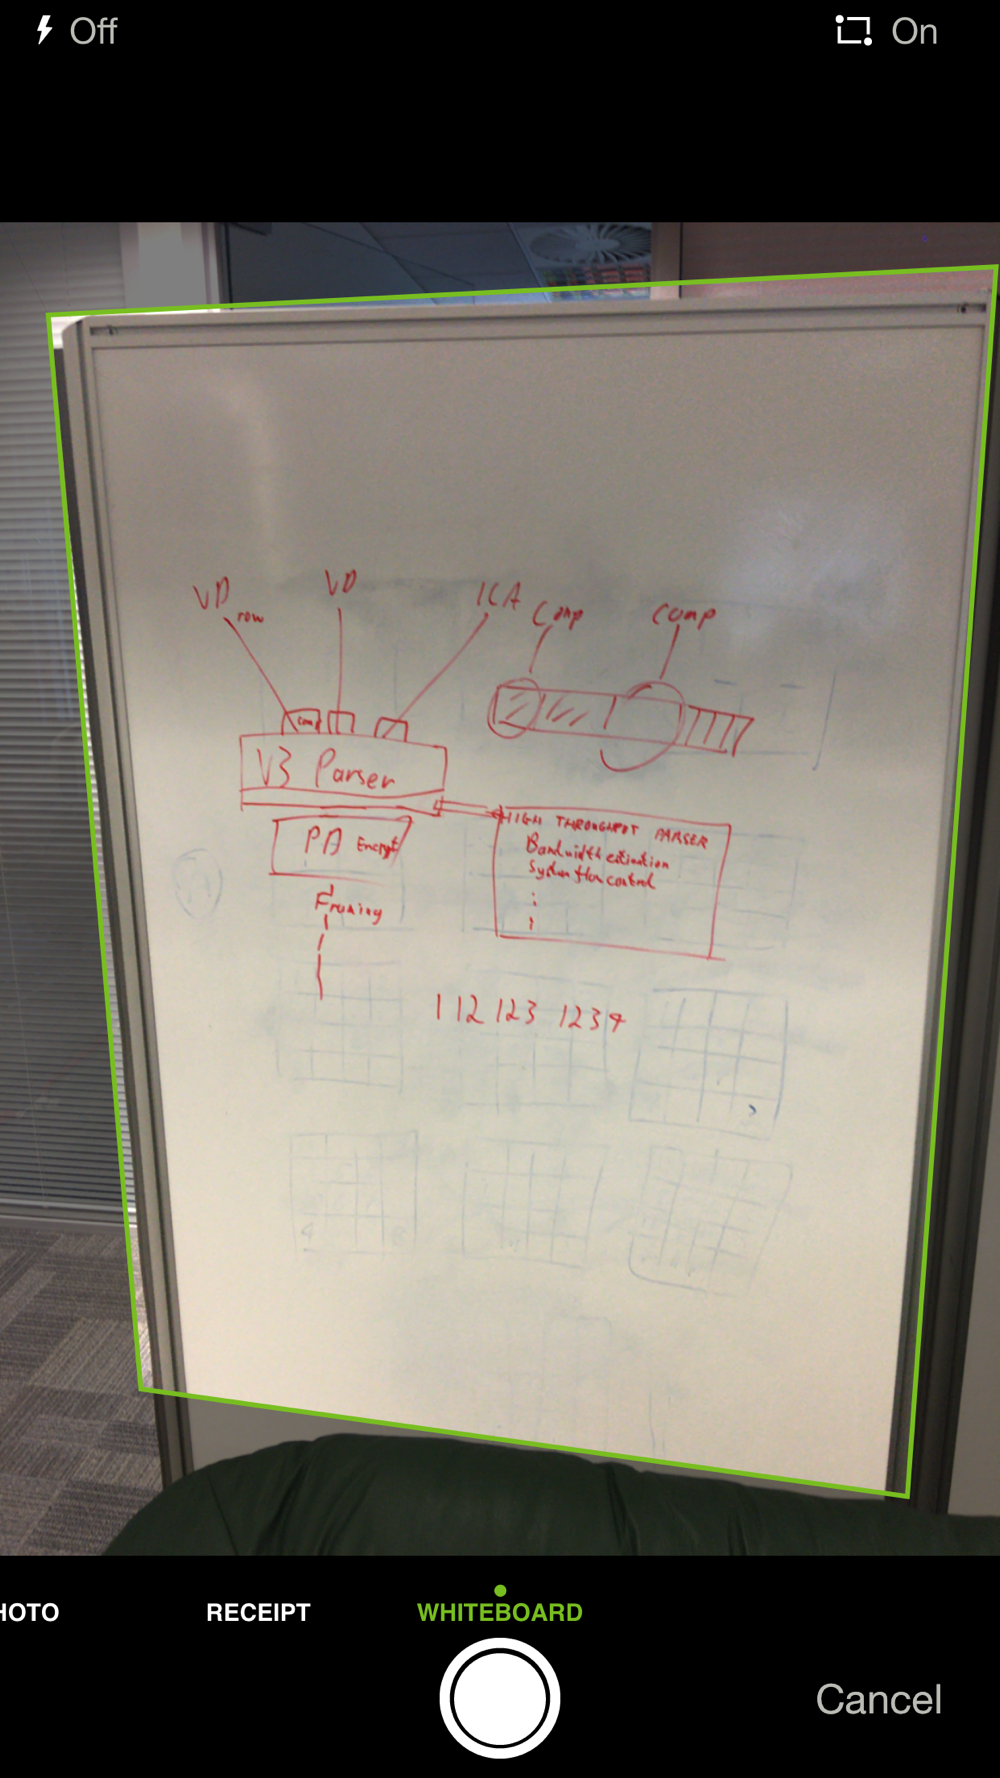 Off
On
VD row
VD
ICA
Comp
Comp
Comp
V3 Parser
HIGH THROUGHPUT PARSER
Bandwidth estimation
System flow control
PD Encrypt
Framing
1 12 123 1234
HOTO
RECEIPT
WHITEBOARD
Cancel